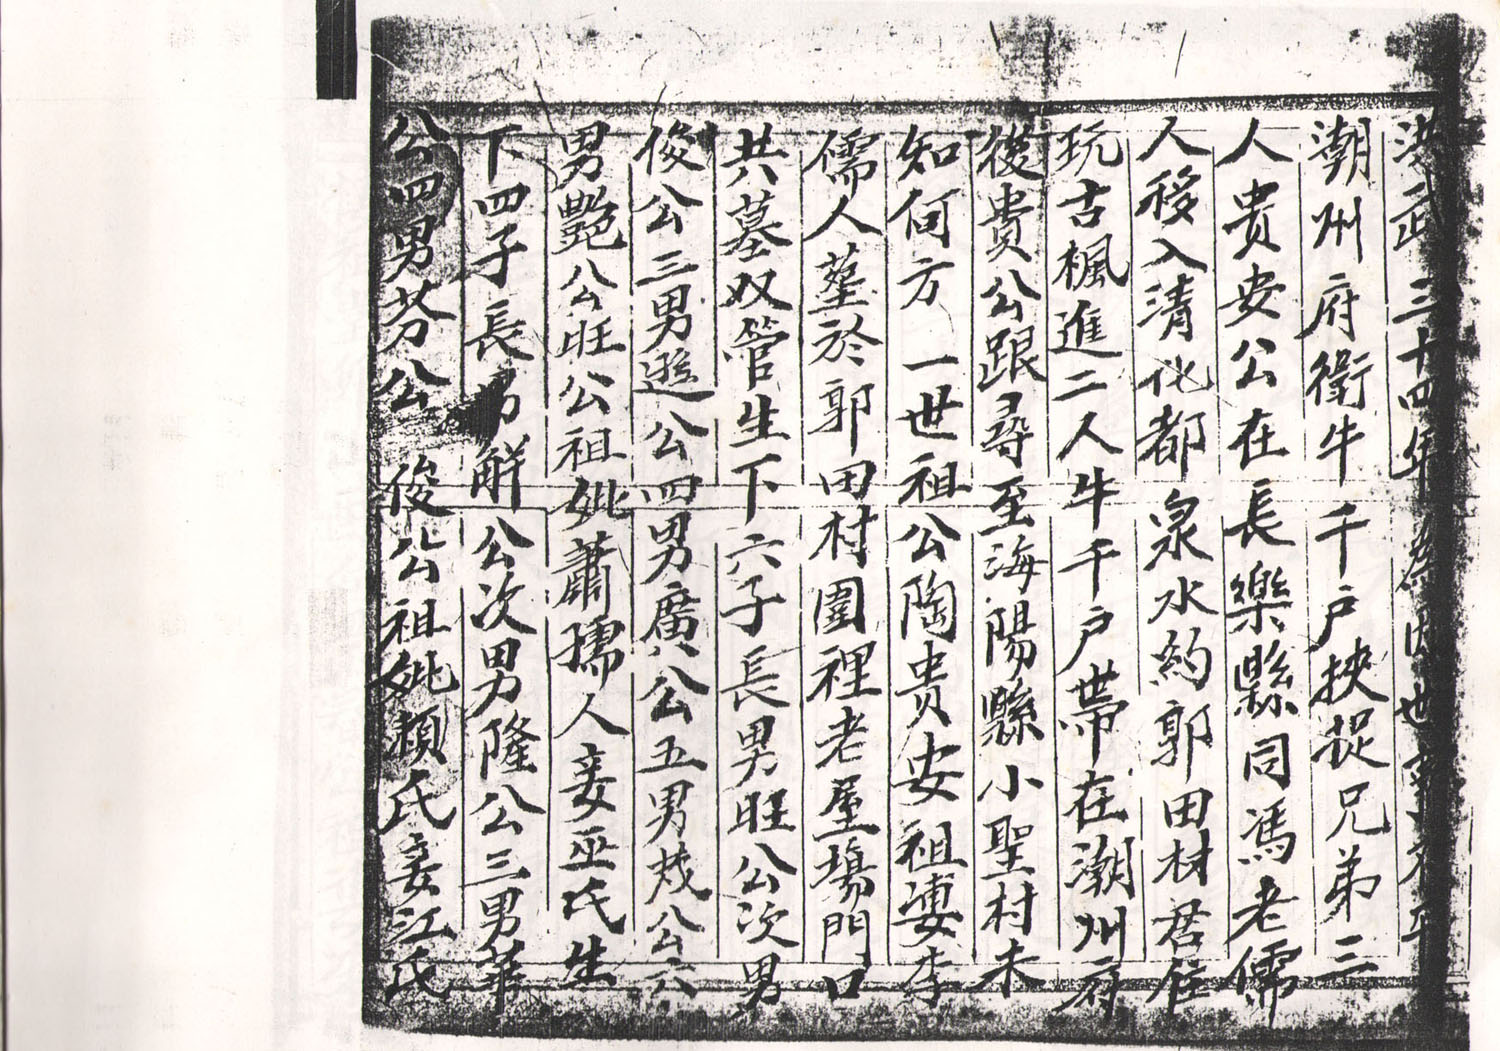 洪武三十四年為因世亂
潮州府衛牛千戶挾捉兄弟三
人貴安公在長樂縣同馮老儒
人移入清化都泉水約郭田村君住
玩古楓進二人牛千戶帶在潮州府
後貴公跟尋至海陽縣小聖村未
知何方一世祖公陶贵安祖婆李
儒人塟於郭田村圍裡老屋塲門口
共墓奴管生下六子長男旺公次男
俊公三男遜公四男廣公五男公六
男艷公旺公祖妣蕭孺人妾巫氏生
下四子長男觧公次男隆公三男華
公四男芬公俊公祖妣賴氏妾江氏